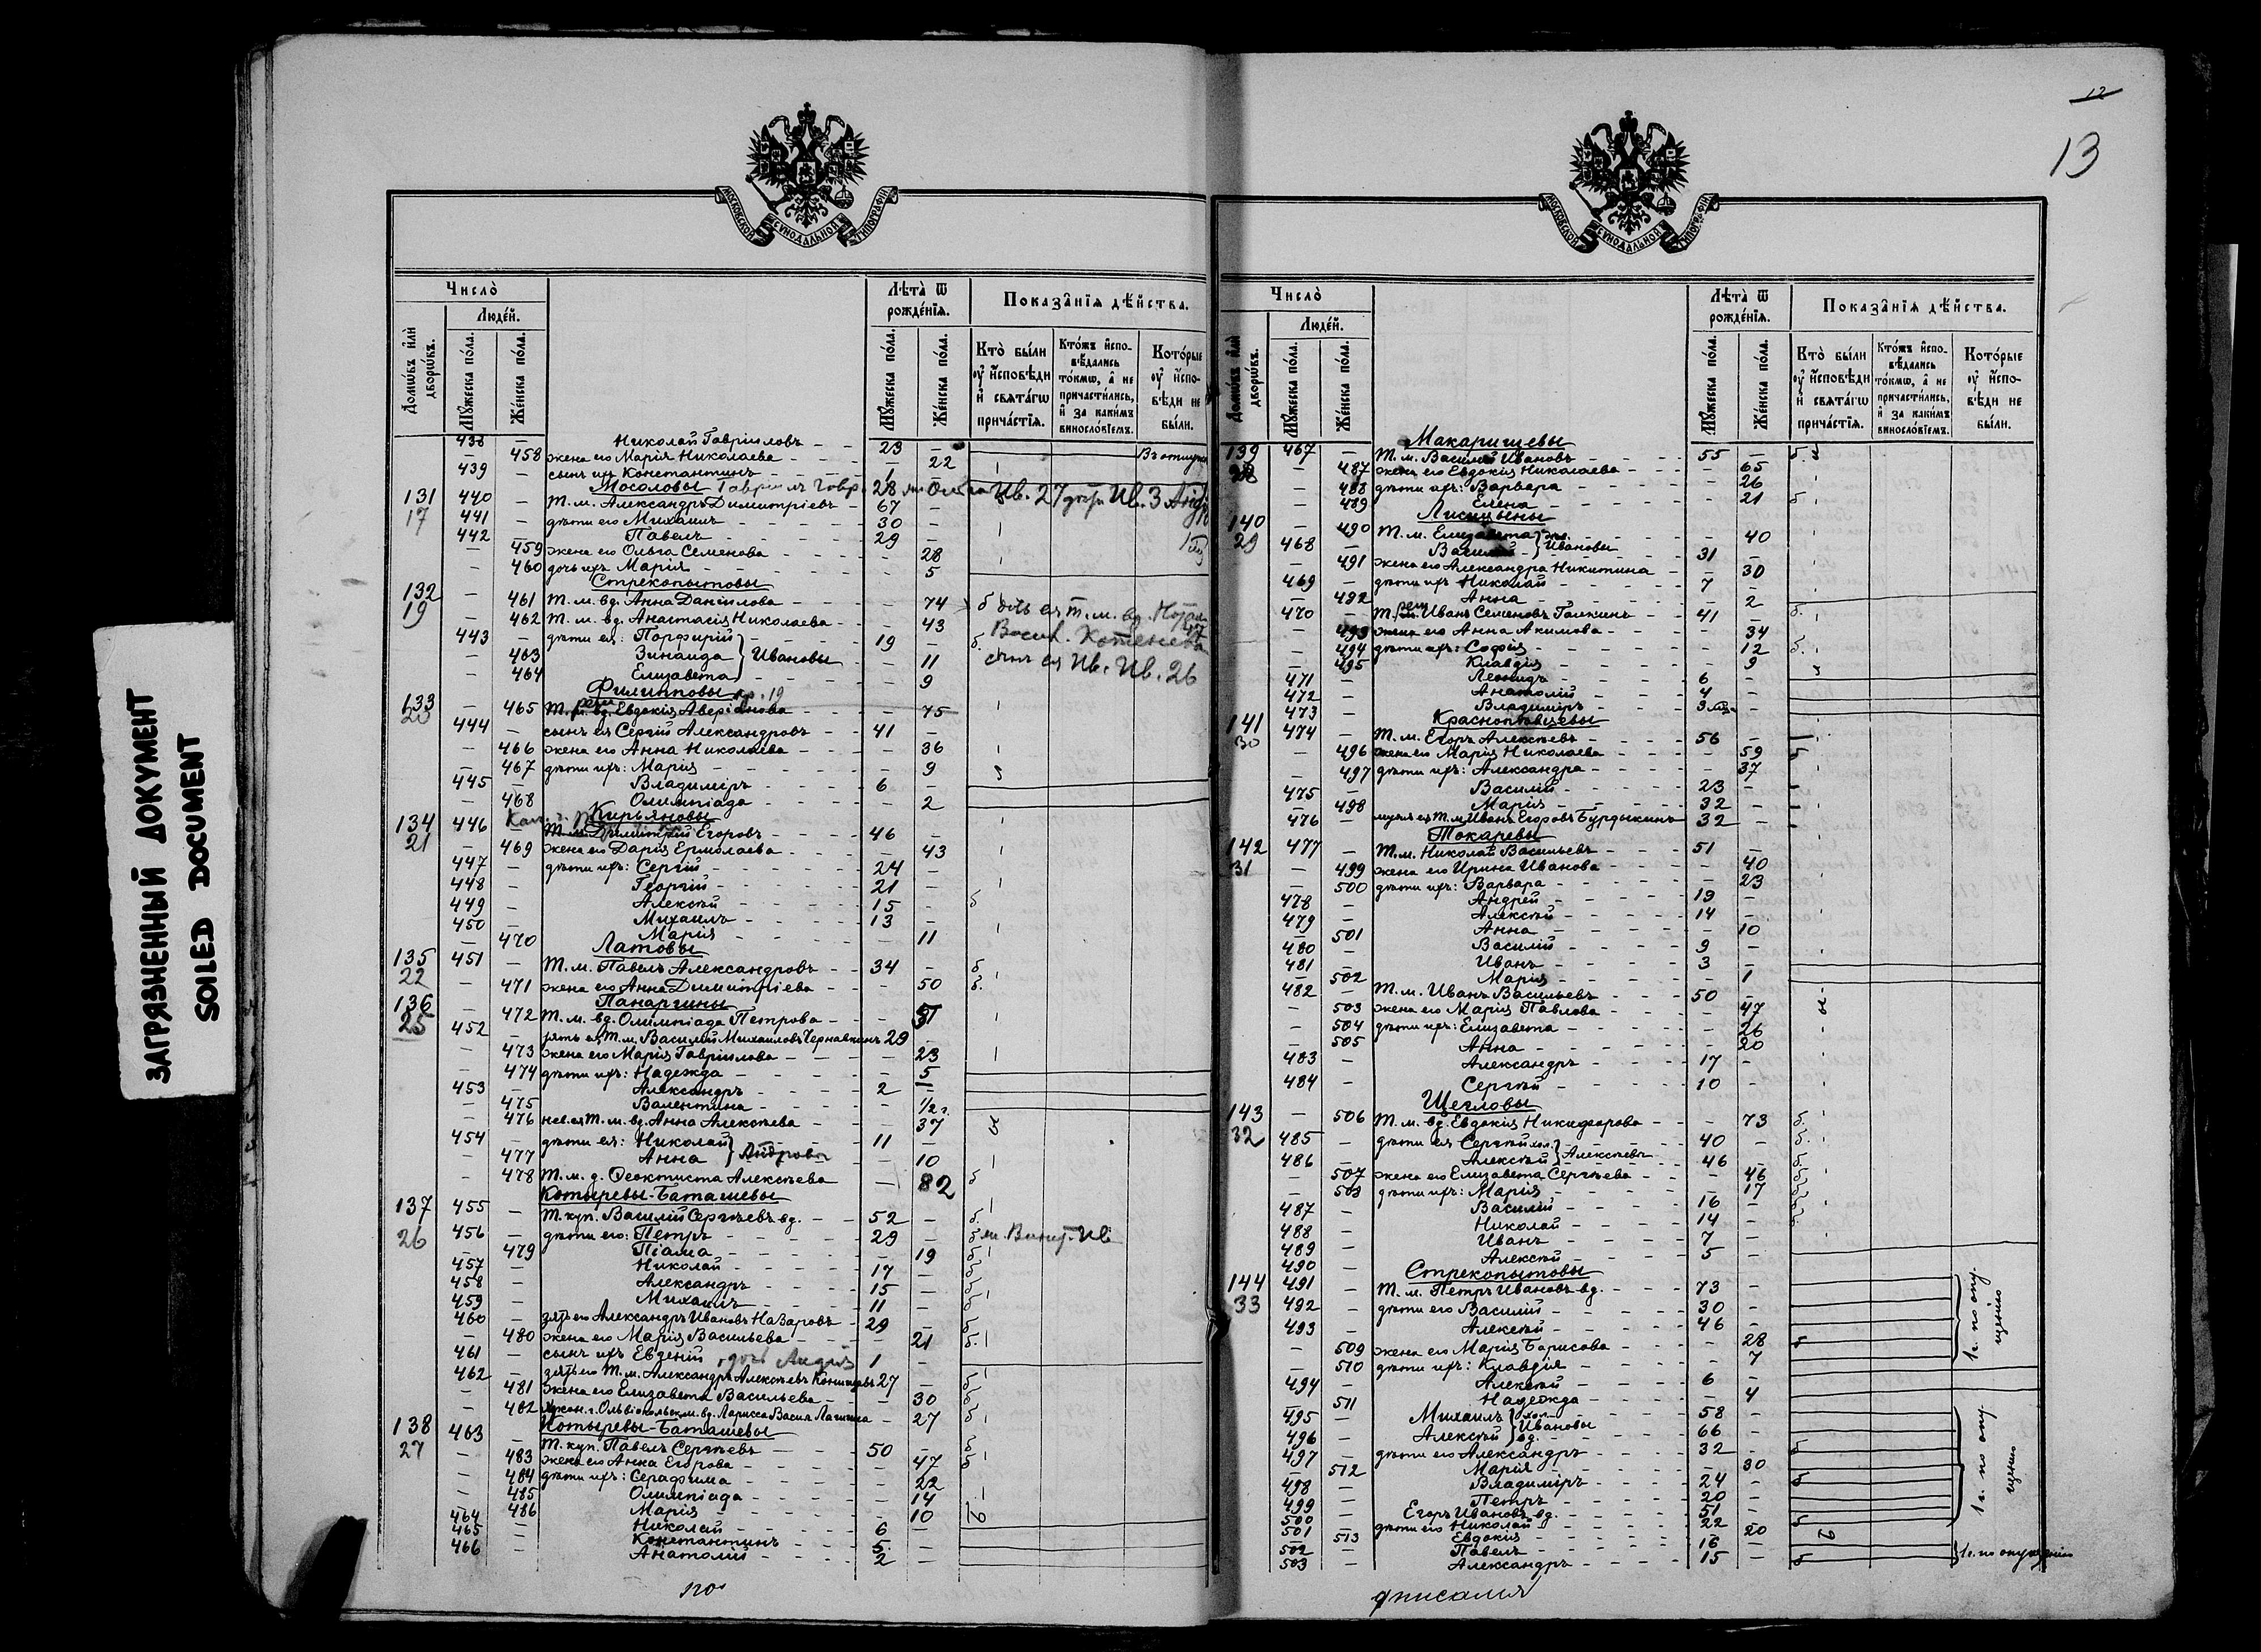 ЗАГРЯЗНЕННЫЙ ДОКУМЕНТ
SOILED DOCUMENT
МОСКОВСКОЙ СѴНОДАЛЬНОЙ ТИПОГРАФІИ
Число̀
Людей.
Домѡвъ и҆лѝ дворѡвъ.
Мꙋжеска пола.
Женска пола.
Лѣта̀ ѿ рожденїѧ.
Мꙋжеска пола.
Женска пола.
Показанїѧ дѣйства.
Кто̀ были ᲂу҆ и҆сповѣди и҆ свѧтагѡ причастїѧ.
Ктожъ и҆сповѣдались токмѡ, а҆ не причастились, и҆ за какимъ винословїемъ.
Которые ᲂу҆ и҆сповѣди не были.
438 — Николай Гавріиловъ — 23 —
— 458 жена его Марія Николаева — 22 Въ отпуск
439 — сынъ ихъ Константинъ — 1 —
Мосоловы
131 440 — Т. м. Александръ Димитріевъ — 67 —
17 441 — дѣти его Михаилъ — 30 —
442 — Павелъ — 29 —
— 459 жена его Ольга Семенова — 28
— 460 дочь ихъ Марія — 5
Стрекопытовы
132 — 461 Т. м. вд. Анна Даніилова — 74 б
19 — 462 Т. м. вд. Анастасія Николаева — 43
443 — дѣти ея: Порфирій — 19 — б.
— 463 Зинаида } Ивановы — 11 сынъ ея Ив. Ив. 26
— 464 Елизавета — 9
Филипповы
133 — 465 Т. вд. Евдокія Аверіанова — 75
20 444 — сынъ ея Сергій Александровъ — 41 —
— 466 жена его Анна Николаева — 36
— 467 дѣти ихъ: Марія — 9
445 — Владиміръ — 6 —
— 468 Олимпіада — 2
Кирьяновы
134 446 — Т. м. Димитрій Егоровъ — 46 —
21 — 469 жена его Дарія Ермолаева — 43
447 — дѣти ихъ: Сергій — 24 —
448 — Георгій — 21 —
449 — Алексѣй — 15 — б
450 — Михаилъ — 13 —
— 470 Марія — 11
Латовы
135 451 — Т. м. Павелъ Александровъ — 34 — б
22 — 471 жена его Анна Димитріева — 50 б.
Панаргины
136 — 472 Т. м. вд. Олимпіада Петрова —
25 452 зять ея Т. м. Василій Михаиловъ Чернавкинъ 29 —
— 473 жена его Марія Гавріилова — 23
— 474 дѣти ихъ: Надежда — 5
453 Александръ — 2 —
— 475 Валентина — 1/2 г.
— 476 нев. ея Т. м. вд. Анна Алексѣева — 37
454 — дѣти ея: Николай — 11
— 477 Анна } — 10
— 478 Т. м. д. Ѳеоктиста Алексѣева — 82 б
Котыревы-Баташевы
137 455 — Т. куп. Василій Сергѣевъ вд. — 52 — б.
26 456 — дѣти его: Петръ — 29 — б
— 479 Піама — 19 б
457 — Николай — 17 — б
458 — Александръ — 15 — б
459 — Михаилъ — 11 — б
460 — зять его Александръ Ивановъ Назаровъ — 29 — б
— 480 жена его Марія Васильева — 21 б.
461 — сынъ ихъ Евгеній 1 —
462 — зять его Т. м. Александръ Алексѣевъ 27 — б
— 481 жена его Елизавета Васильева — 30 б
— 482 вд. Ларисса Васил. — 27 б
Котыревы-Баташевы
138 463 — Т. куп. Павелъ Сергѣевъ — 50 — б
27 — 483 жена его Анна Егорова — 47 б
— 484 дѣти ихъ: Серафима — 22
— 485 Олимпіада — 14
— 486 Марія — 10
464 — Николай — 6 —
465 — Константинъ — 5 —
466 — Анатолій — 2 —
по
12
13
МОСКОВСКОЙ СѴНОДАЛЬНОЙ ТИПОГРАФІИ
Число̀
Людей.
Домѡвъ и҆лѝ дворѡвъ.
Мꙋжеска пола.
Женска пола.
Лѣта̀ ѿ рожденїѧ.
Мꙋжеска пола.
Женска пола.
Показанїѧ дѣйства.
Кто̀ были ᲂу҆ и҆сповѣди и҆ свѧтагѡ причастїѧ.
Ктожъ и҆сповѣдались токмѡ, а҆ не причастились, и҆ за какимъ винословїемъ.
Которые ᲂу҆ и҆сповѣди не были.
Макарищевы
139 467 — Т. м. Василій Ивановъ — 55 — б.
— 487 жена его Евдокія Николаева — 65
— 488 дѣти ихъ: Варвара — 26
— 489 Елена — 21 б
Лисицыны
140 — 490 Т. м. Елизавета — 40
29 468 — Василій } Ивановы 31 —
— 491 жена его Александра Никитина — 30
469 — дѣти ихъ Николай — 7 —
— 492 Анна — 2
470 — Т. рем. Иванъ Семеновъ Галкинъ — 41 — б.
— 493 жена его Анна Акимова — 34
— 494 дѣти ихъ: Софія — 12 б.
— 495 Клавдія — 9
471 — Леонидъ — 6 —
472 — Анатолій — 4 —
473 — Владиміръ — 3 —
Краснопѣвцевы
141 474 — Т. м. Егоръ Алексѣевъ — 56 —
30 — 496 жена его Марія Николаева — 59 б
— 497 дѣти ихъ: Александра — 37
475 — Василій — 23 —
— 498 Марія — 32 —
476 мужъ ея Т. м. Иванъ Егоровъ Бурдыкинъ 32 —
Токаревы
142 477 — Т. м. Николай Васильевъ — 51 —
31 — 499 жена его Ирина Иванова — 40
— 500 дѣти ихъ: Варвара — 23
478 — Андрей — 19 —
479 — Алексѣй — 14 —
— 501 Анна — 10
480 — Василій — 9 —
481 — Иванъ — 3 —
— 502 Марія — 1
482 — Т. м. Иванъ Васильевъ — 50 —
— 503 жена его Марія Павлова — 47
— 504 дѣти ихъ: Елизавета — 26
— 505 Анна — 20
483 — Александръ — 17 —
484 — Сергѣй — 10 —
Щегловы
143 — 506 Т. м. вд. Евдокія Никифорова — 73 б.
32 485 — дѣти ея Сергѣй хол. — 40 — б.
486 — Алексѣй } Алексѣевы 46 — б.
— 507 жена его Елизавета Сергѣева — 46 б
— 508 дѣти ихъ: Марія — 17 б
487 — Василій — 16 — б
488 — Николай — 14 — б
489 — Иванъ — 7 —
490 — Алексѣй — 5 —
Стрекопытовы
144 491 — Т. м. Петръ Ивановъ вд. — 73 —
33 492 — дѣти его Василій — 30 —
493 — Алексѣй — 46 —
— 509 жена его Марія Борисова — 28 б
— 510 дѣти ихъ: Клавдія — 7
494 — Алексѣй — 6 —
— 511 Надежда — 4
1 г. по опущенію
495 — Михаилъ хол. — 58 —
496 — Алексѣй вд. } Ивановы 66 —
497 — дѣти его Александръ — 32 — б
— 512 Марія — 30
498 — Владиміръ — 24 — б
499 — Петръ — 20 —
500 — Егоръ Ивановъ вд. — 51 —
501 — дѣти его Николай — 22 — б
— 513 Евдокія — 20
502 — Павелъ — 16 —
503 — Александръ — 15 — б
1 г. по опущенію
1 г. по опущенію
дписался